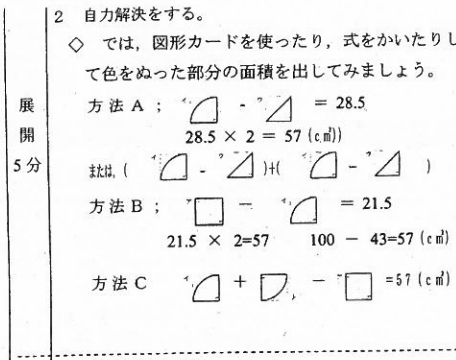 2 自力解決をする。
◇ では，図形カードを使ったり，式をかいたりし
て色をぬった部分の面積を出してみましょう。
展
開
5分
方法A； - = 28.5
28.5 × 2 = 57 (c㎡))
または, ( - )+( - )
方法B； － = 21.5
21.5 × 2=57 100 － 43=57 (c㎡)
方法C + － =57 (c㎡)